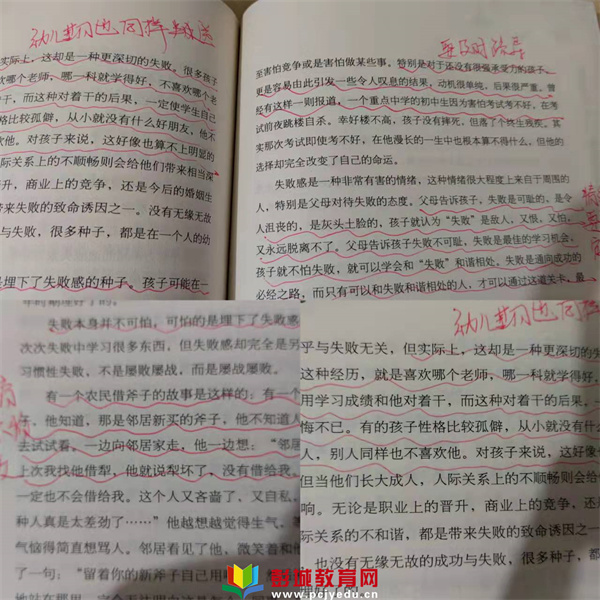 幼儿期也同样
实际上，这却是一种更深切的失败。很多孩子
哪个老师，哪一科就学得好，不喜欢哪个老
干，而这种对着干的后果，一定使学生自己
格比较孤僻，从小就没有什么好朋友，他不
欢他。对孩子来说，这好像也算不上明显的
际关系上的不顺畅则会给他们带来相当深
升，商业上的竞争，还是今后的婚姻生
带来失败的致命诱因之一。没有无缘无故
与失败，很多种子，都是在一个人的幼
是埋下了失败感的种子。孩子可能在一
要及时疏导
至害怕竞争或是害怕做某些事。特别是对于还没有很强承受力的孩子，
更是容易由此引发一些令人叹息的结果，动机很单纯，后果很严重。曾
经有这样一则报道，一个重点中学的初中生因为害怕考试考不好，在考
试前夜跳楼自杀。幸好楼不高，孩子没有摔死，但落了个终生残疾。其
实那次考试即使考不好，在他漫长的一生中也根本算不得什么，但他的
选择却完全改变了自己的命运。
失败感是一种非常有害的情绪，这种情绪很大程度上来自于周围的
人，特别是父母对待失败的态度。父母告诉孩子，失败是可耻的，是令
人沮丧的，是灰头土脸的，孩子就认为“失败”是敌人，又恨，又怕，
又永远脱离不了。父母告诉孩子失败不可耻，失败是最佳的学习机会，
孩子就不怕失败，就可以学会和“失败”和谐相处。失败是通向成功的
必经之路，而只有可以和失败和谐相处的人，才可以通过这道关卡，最
失败本身并不可怕，可怕的是埋下了失败感
次次失败中学习很多东西，但失败感却完全是另
习惯性失败，不是屡败屡战，而是屡战屡败。
有一个农民借斧子的故事是这样的：有一个
，他知道，那是邻居新买的斧子，他不知道人
去试试看。一边向邻居家走，他一边想：“邻居
上次我找他借犁，他就说犁坏了，没有借给我。
一定也不会借给我。这个人又吝啬了，又自私，
种人真是太差劲了……”他越想越觉得生气，
气恼得简直想骂人。邻居看见了他，微笑着和他
了一句：“留着你的新斧子自己用
幼儿期也同样
乎与失败无关，但实际上，这却是一种更深切的失
这种经历，就是喜欢哪个老师，哪一科就学得好，
用学习成绩和他对着干，而这种对着干的后果，一
悔不已。有的孩子性格比较孤僻，从小就没有什么
人，别人同样也不喜欢他。对孩子来说，这好像也
但当他们长大成人，人际关系上的不顺畅则会给
响。无论是职业上的晋升，商业上的竞争，还是
际关系的不和谐，都是带来失败的致命诱因之一
也没有无缘无故的成功与失败，很多种子，都
彭城教育网
www.pcjyedu.cn